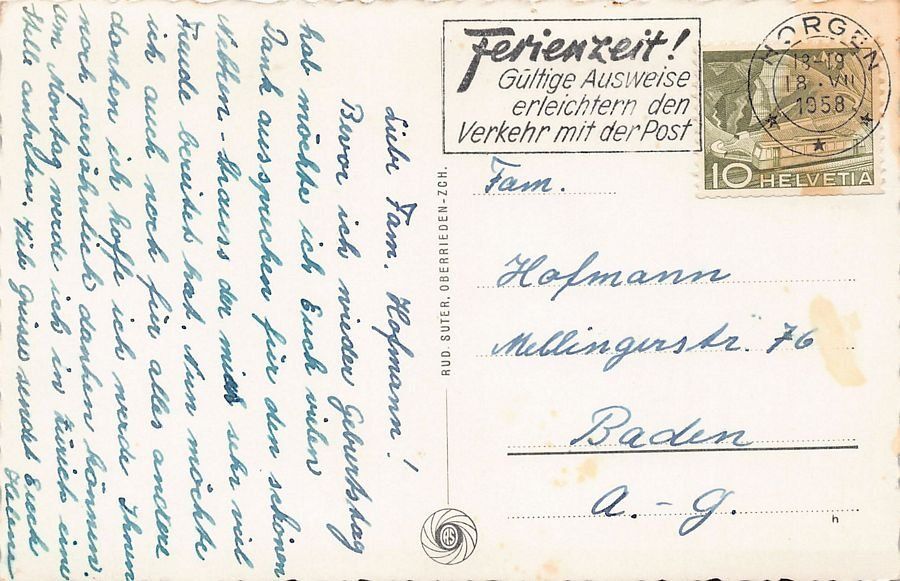 Ferienzeit!
Gültige Ausweise
erleichtern den
Verkehr mit der Post
HORGEN
18-19
18. VII
1958
10 HELVETIA
Fam.
Hofmann
Mellingerstr. 76
Baden
A.-G.
h
RUD. SUTER, OBERRIEDEN-ZCH.
Liebe Fam. Hofmann!
Bevor ich wieder Geburtstag
hab möchte ich Euch vielen
Dank aussprechen für den schönen
Nelken-strauss der mich sehr viel
Freude bereitet hat. Nun möchte
ich auch noch für alles andere
danken ich hoffe ich werde Ihnen
noch persöhnlich danken können.
am Montag werde ich in Zürich eine
Stelle antreten. Viele Grüsse sendet Euch